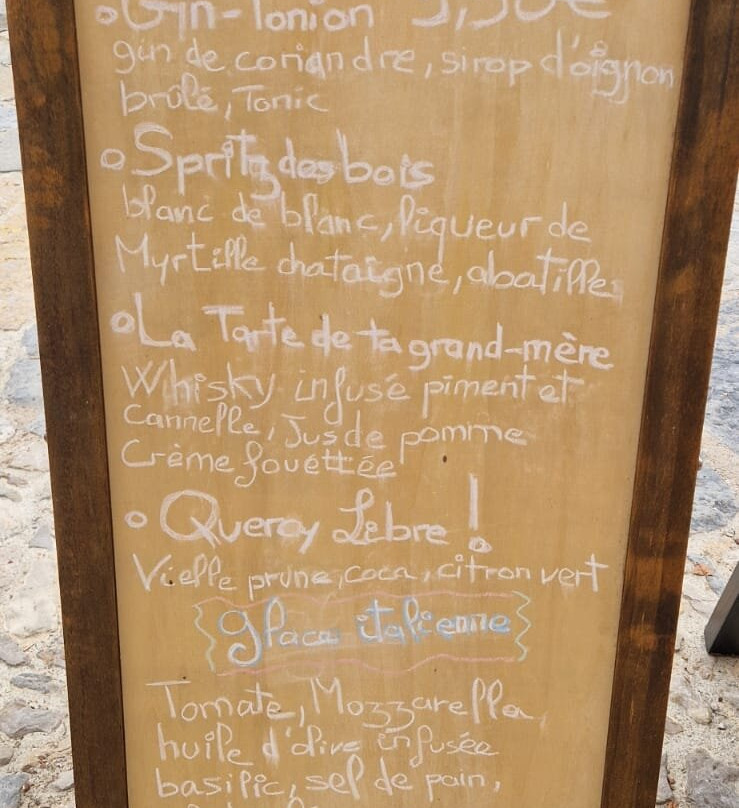 Gin-Tonion 5,50€
gin de coriandre, sirop d'oignon
brûlé, Tonic
Spritz des bois
blanc de blanc, liqueur de
Myrtille chataigne, abatilles
La Tarte de ta grand-mère
Whisky infusé piment et
Cannelle, Jus de pomme
Crème fouéttée
Quercy Libre !
Vielle prune, coca, citron vert
glace italienne
Tomate, Mozzarella,
huile d'olive infusée
basilic, sel de pain,